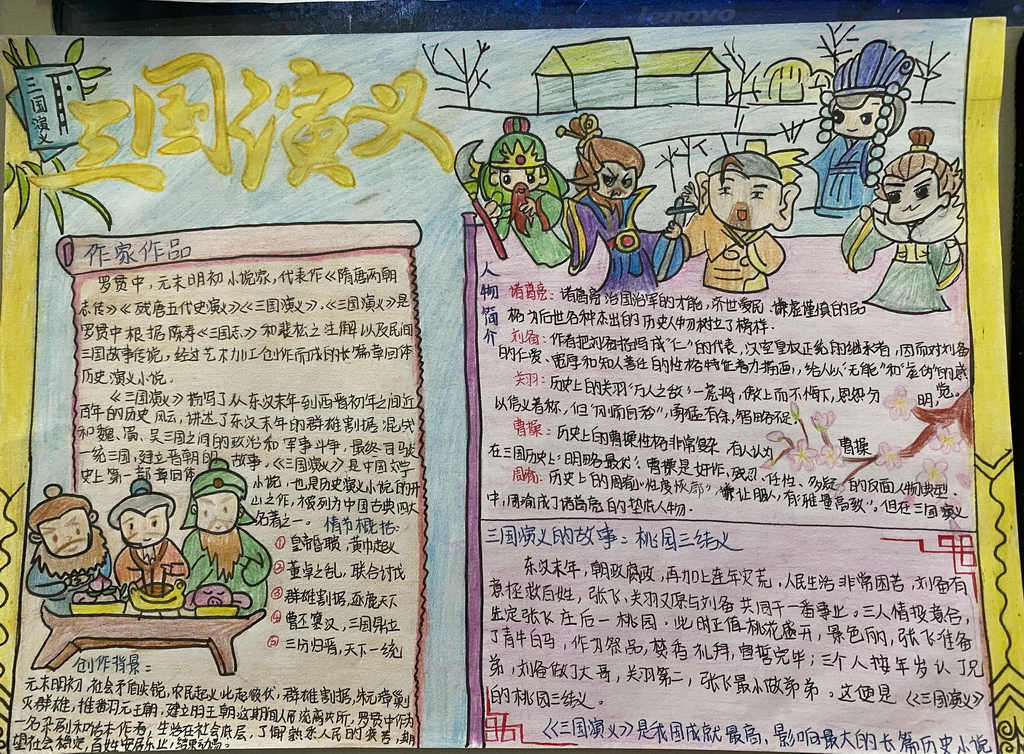 lenovo
三国演义
三国演义
作家作品
罗贯中，元末明初小说家，代表作《隋唐两朝
志传》《残唐五代史演义》《三国演义》，《三国演义》是
罗贯中根据陈寿《三国志》和裴松之注解以及民间
三国故事传说，经过艺术加工创作而成的长篇章回体
历史演义小说。
《三国演义》描写了从东汉末年到西晋初年之间近
百年的历史风云，讲述了东汉末年的群雄割据混战
和魏、蜀、吴三国之间的政治和军事斗争，最终司马炎
一统三国，建立晋朝的故事。《三国演义》是中国文学
史上第一部章回体小说，也是历史演义小说的开
山之作，被列为中国古典四大
名著之一。
情节概括：
①皇帝昏聩，黄巾起义
②董卓之乱，联合讨伐
③群雄割据，逐鹿天下
④曹丕篡汉，三国鼎立
⑤三分归晋，天下一统
创作背景：
元末明初，社会矛盾尖锐，农民起义此起彼伏，群雄割据，朱元璋剿
灭群雄，推翻元王朝，建立明王朝这期间人民流离失所，罗贯中作为
一名杂剧和话本作者，生活在社会底层，了解熟悉人民的疾苦，期
望社会稳定，百姓安居乐业
人物简介
诸葛亮：诸葛亮治国治军的才能，济世爱民、谦虚谨慎的品
格为后世各种杰出的历史人物树立了榜样。
刘备：作者把刘备描写成“仁”的代表，汉室皇权正统的继承者，因而对刘备
的仁爱、宽厚和知人善任的性格特征着力描画，给人以“无能”和“虚伪”的感觉。
关羽：历史上的关羽“万人之敌”一荒将，傲上而不悔下，恩怨分明，
以信义著称，但“刚而自矜”，勇猛有余，智略不足。
曹操：历史上的曹操性格非常复杂，有人认为曹操
在三国历史上“明略最优”，曹操是奸诈、残忍、任性、多疑的反面人物典型。
周瑜：历史上的周瑜“性度恢廓”“谦让服人，有雅量高致”，但在三国演义
中，周瑜成了诸葛亮的垫底人物。
三国演义的故事：桃园三结义
东汉末年，朝政腐败，再加上连年灾荒，人民生活非常困苦，刘备有
意拯救百姓，张飞、关羽又愿与刘备共同干一番事业。三人情投意合，
选定张飞庄后一桃园。此时正值桃花盛开，景色明，张飞准备
了青牛白马，作为祭品，焚香礼拜，宣誓完毕，三个人按年岁认了兄
弟，刘备做了大哥，关羽第二，张飞最小做弟弟。这便是《《三国演义》
的桃园三结义。
《《三国演义》是我国成就最高，影响最大的长篇历史小说